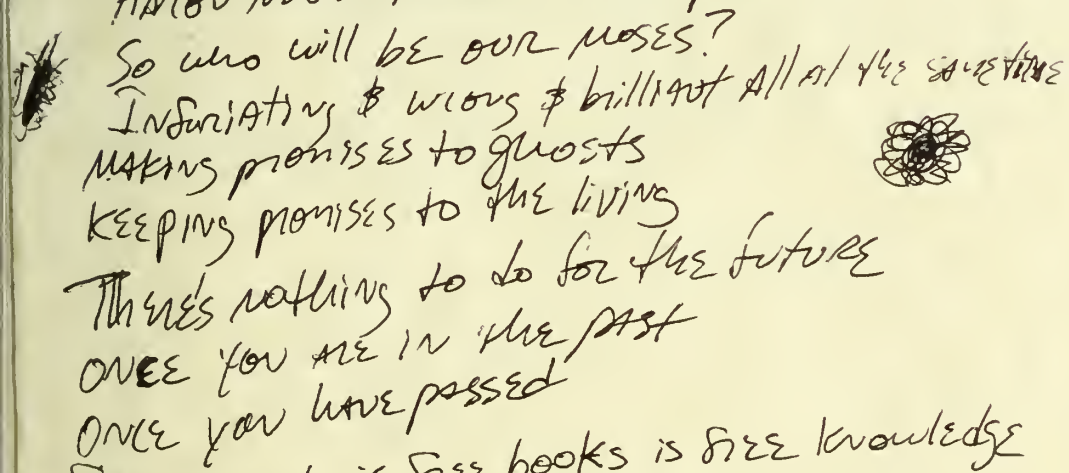 So who will be our Moses?
Infuriating & wrong & brilliant All at the same time
Making promises to ghosts
Keeping promises to the living
There's nothing to do for the future
Once you are in the past
Once you have passed
is free books is free knowledge